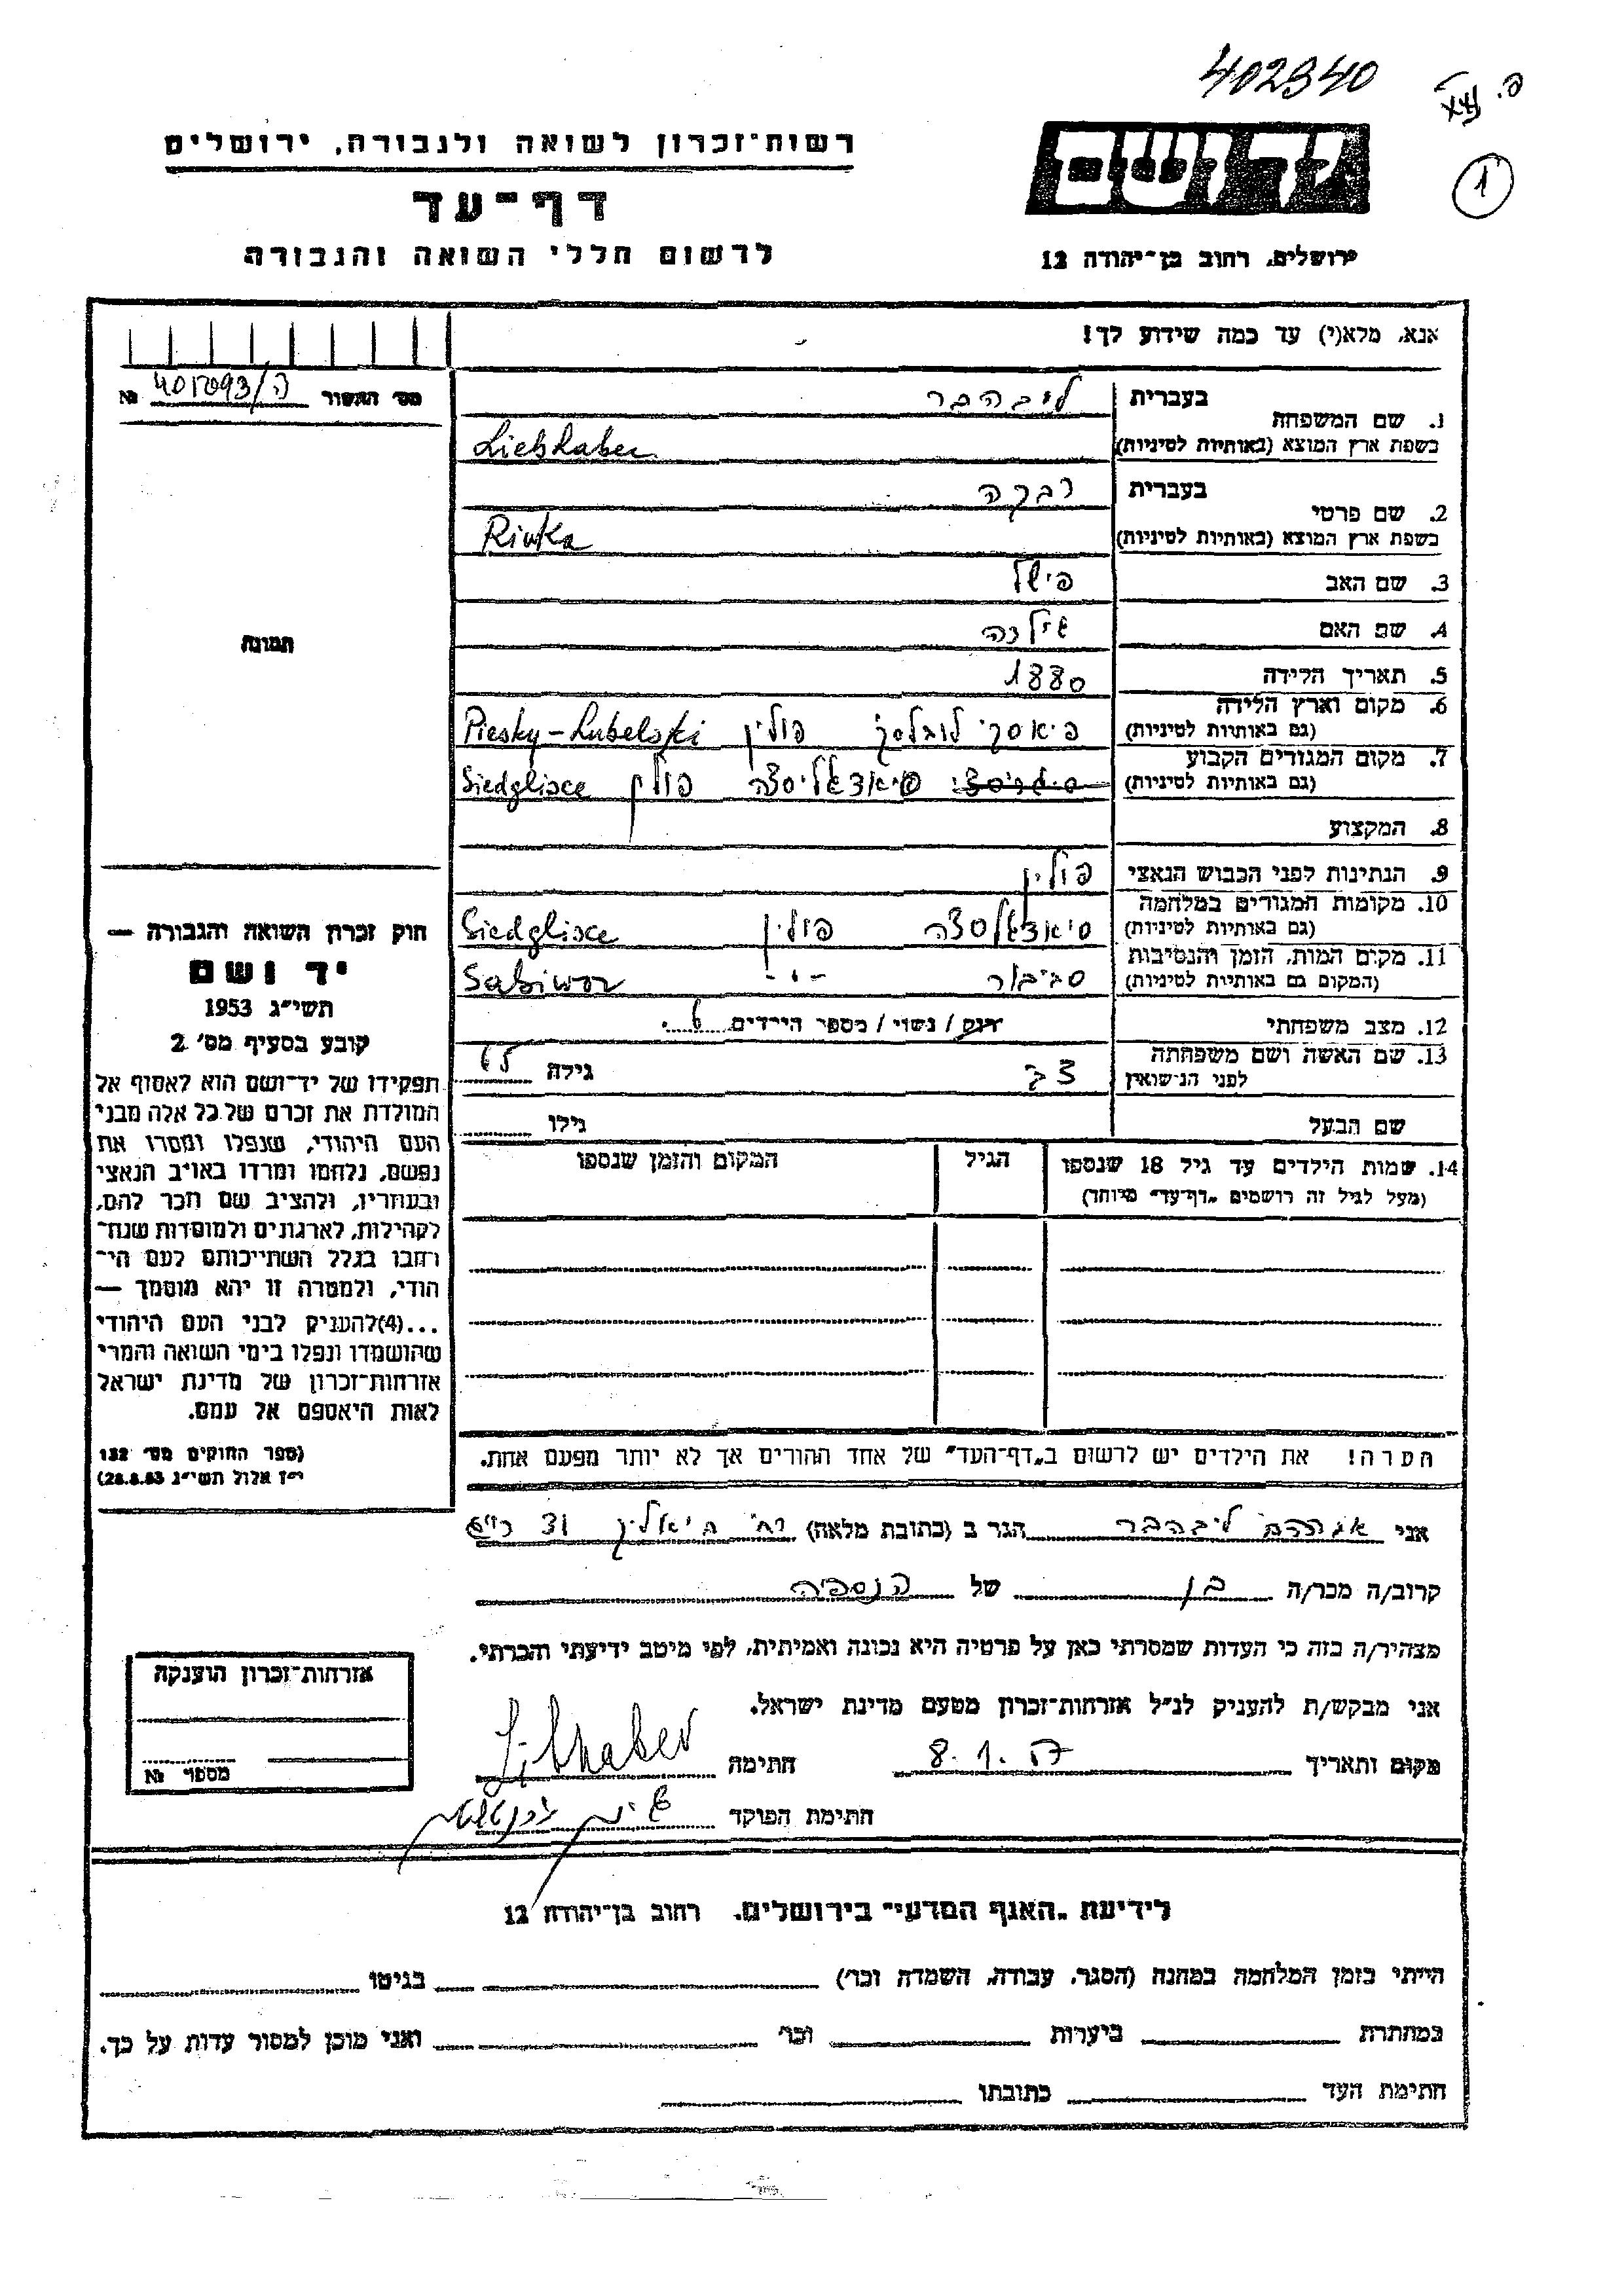 402340
רשות־זכרון לשואה ולגבורה, ירושלים
ידושם
1
דף־עד
לרשום חללי השואה והגבורה
ירושלים, רחוב בן־יהודה 12
אנא, מלא(י) עד כמה שידוע לך!
בעברית ליבהבר
1. שם המשפחה
בשפת ארץ המוצא (באותיות לטיניות) Liebhaber
בעברית רבקה
2. שם פרטי
בשפת ארץ המוצא (באותיות לטיניות) Riwka
3. שם האב פישל
4. שם האם
5. תאריך הלידה 1880
6. מקום וארץ הלידה
(גם באותיות לטיניות) פיאסקי לובלסקי פולין Piesky-Lubelski
7. מקום המגורים הקבוע
(גם באותיות לטיניות) סיאדגליסצה פולין Siedglisce
8. המקצוע
9. הנתינות לפני הכבוש הנאצי פולין
10. מקומות המגורים במלחמה
(גם באותיות לטיניות) סיאדגלסצה פולין Siedglisce
11. מקום המות, הזמן והנסיבות
(המקום גם באותיות לטיניות) סביבור -"- Sabiwor
12. מצב משפחתי רווק / נשוי / מספר הילדים 6
13. שם האשה ושם משפחתה
לפני הנישואין גילה 65
שם הבעל גילו
14. שמות הילדים עד גיל 18 שנספו הגיל המקום והזמן שנספו
(מעל לגיל זה רושמים „דף־עד" מיוחד)
הערה! את הילדים יש לרשום ב„דף־העד" של אחד ההורים אך לא יותר מפעם אחת.
מס' האשור 401093/ה №
תמונה
חוק זכרון השואה והגבורה —
יד ושם
תשי"ג 1953
קובע בסעיף מס' 2
תפקידו של יד־ושם הוא לאסוף אל
המולדת את זכרם של כל אלה מבני
העם היהודי, שנפלו ומסרו את
נפשם, נלחמו ומרדו באויב הנאצי
ובעוזריו, ולהציב שם וזכר להם,
לקהילות, לארגונים ולמוסדות שנח־
רבו בגלל השתייכותם לעם הי־
הודי, ולמטרה זו יהא מוסמך —
...(4)להעניק לבני העם היהודי
שהושמדו ונפלו בימי השואה והמרי
אזרחות־זכרון של מדינת ישראל
לאות היאספם אל עמם.
(ספר החוקים מס' 132
י"ז אלול תשי"ג 28.8.53)
אני אברהם ליבהבר הגר ב (כתובת מלאה) רח' ביאליק
קרוב/ה מכר/ה בן של הנספה
מצהיר/ה בזה כי העדות שמסרתי כאן על פרטיה היא נכונה ואמיתית, לפי מיטב ידיעתי והכרתי.
אני מבקש/ת להעניק לנ"ל אזרחות־זכרון מטעם מדינת ישראל.
מקום ותאריך 8.1. חתימה Libhaber
חתימת הפוקד
אזרחות־זכרון הוענקה
מספר №
לידיעת „האגף המדעי" בירושלים, רחוב בן־יהודה 12
הייתי בזמן המלחמה במחנה (הסגר, עבודה, השמדה וכר') בגיטו
במחתרת ביערות וכר' ואני מוכן למסור עדות על כך.
חתימת העד כתובתו